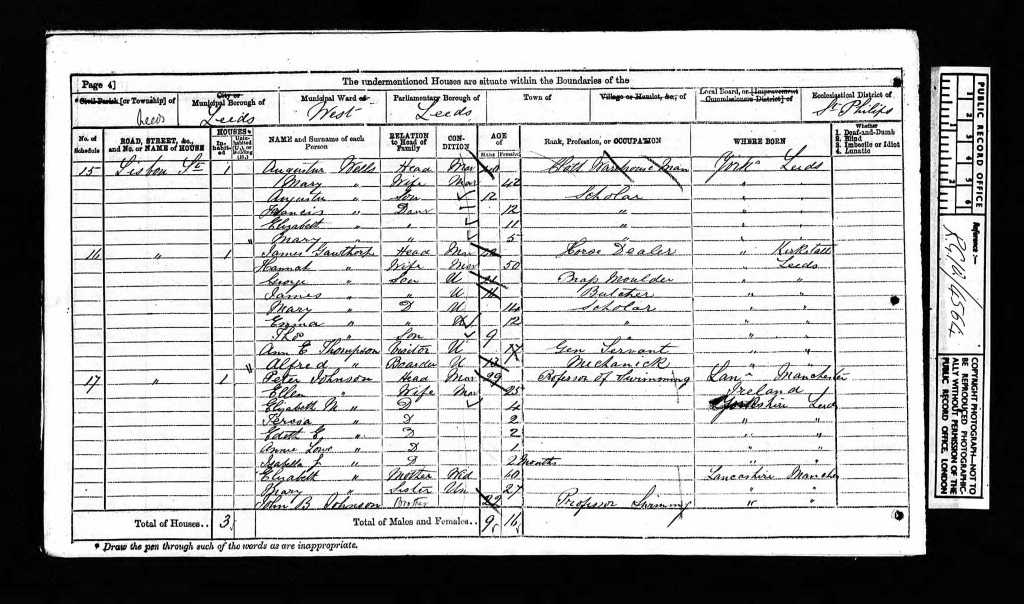 Page 4] The undermentioned Houses are situate within the Boundaries of the
Civil Parish [or Township] of Leeds
City or Municipal Borough of Leeds
Municipal Ward of West
Parliamentary Borough of Leeds
Town of
Village or Hamlet, &c., of
Local Board, or [Improvement Commissioners District] of
Ecclesiastical District of St Philips
No. of Schedule ROAD, STREET, &c., and No. or NAME of HOUSE HOUSES In-habited Unin-habited (U.), or Building (B.) NAME and Surname of each Person RELATION to Head of Family CON-DITION AGE of Males Females Rank, Profession, or OCCUPATION WHERE BORN Whether 1. Deaf-and-Dumb 2. Blind 3. Imbecile or Idiot 4. Lunatic
15 Lisbon St 1 Augustus Wells Head Mar Cloth Warehouse Man York Leeds
Mary " Wife Mar 42 "
Augustus " Son 12 Scholar "
Francis " Daur 12 " "
Elizabeth " " 11 " "
Mary " " 5 " "
16 " 1 James Gawthorp Head Mar Horse Dealer " Kirkstall
Hannah " Wife Mar 50 " Leeds
George " Son U Brass Moulder " "
James " " U Butcher " "
Mary " D U 14 Scholar " "
Emma " " 12 " " "
Thos " Son 9 " " "
Ann E Thompson Visitor U 17 Gen Servant " "
Alfred " Boarder U Mechanick " "
17 " 1 Peter Johnson Head Mar 29 Professor of Swimming Lan Manchester
Ellen " Wife Mar 25 Ireland
Elizabeth M " D 4 Yorkshire Leeds
Teresa " D 2 " "
Edith E " D 2 " "
Annie Lour " D 1 " "
Isabella J " D 2 Months " "
Elizabeth " Mother Wd 40 Lancashire Manches
Mary " Sister Un 27 " "
John B Johnson Brother 22 Professor Swimming " "
Total of Houses.. 3 Total of Males and Females.. 9 16
* Draw the pen through such of the words as are inappropriate.
PUBLIC RECORD OFFICE
1 2 3 4 5 6
Reference:-
RG10/4564
COPYRIGHT PHOTOGRAPH—NOT TO BE REPRODUCED PHOTOGRAPHICALLY WITHOUT PERMISSION OF THE PUBLIC RECORD OFFICE, LONDON